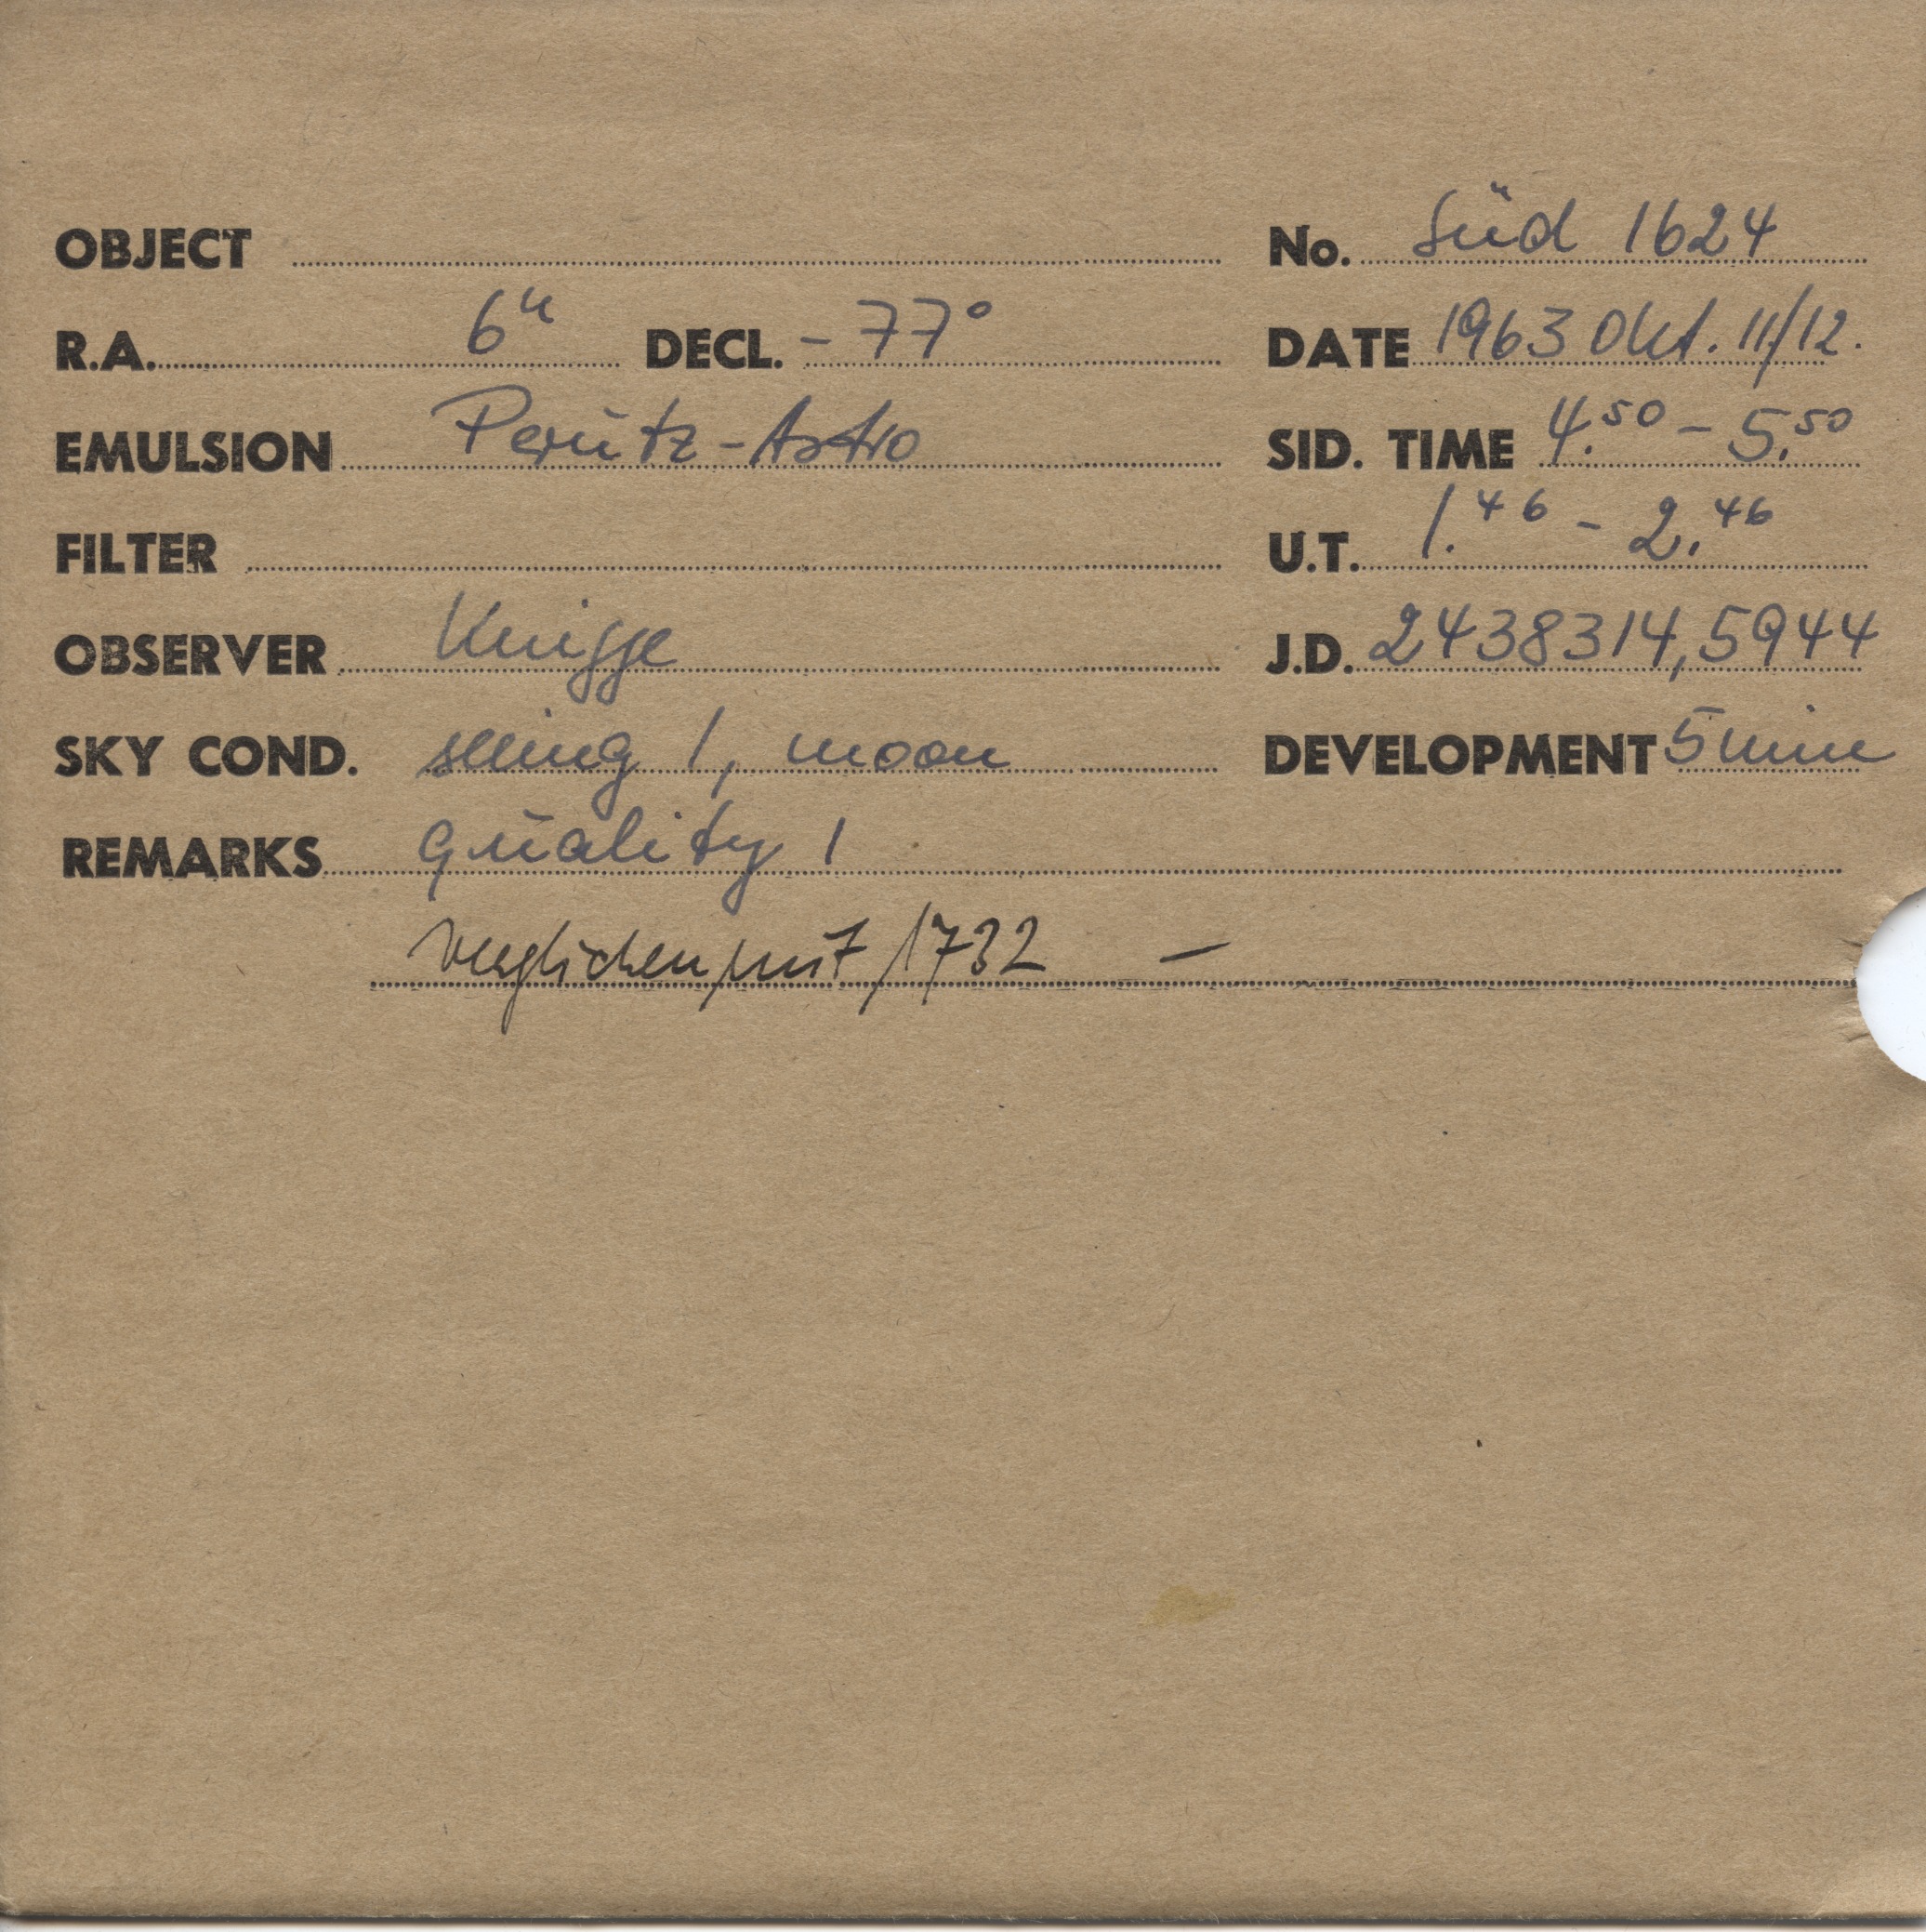 OBJECT No. Süd 1624
R.A. 6ʰ DECL. -77° DATE 1963 Okt. 11/12.
EMULSION Perutz-Astro SID. TIME 4.⁵⁰ - 5.⁵⁰
FILTER U.T. 1.⁴⁶ - 2.⁴⁶
OBSERVER Knigge J.D. 2438314,5944
SKY COND. seeing 1, moon DEVELOPMENT 5 min
REMARKS quality 1
verglichen mit 1732 -